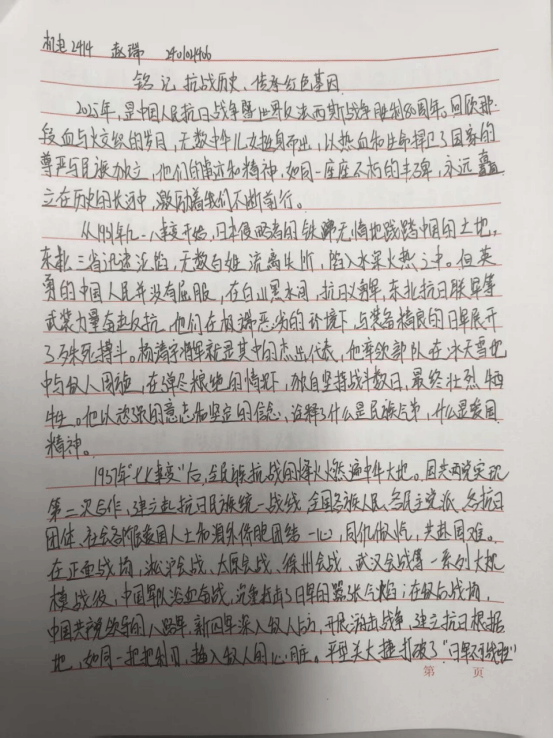 机电2414 赵瑞
铭记抗战历史、传承红色基因
2025年，是中国人民抗日战争暨世界反法西斯战争胜利80周年。回顾那
段血与火交织的岁月，无数中华儿女挺身而出，以热血和生命捍卫了国家的
尊严与民族独立，他们的事迹和精神，如同一座座不朽的丰碑，永远矗
立在历史的长河中，激励着我们不断前行。
从1931年九一八事变开始，日本侵略者的铁蹄无情地践踏中国的土地，
东北三省迅速沦陷，无数百姓流离失所，陷入水深火热之中。但英
勇的中国人民并没有屈服，在白山黑水间，抗日义勇军，东北抗日联军等
武装力量奋起反抗，他们在极端恶劣的环境下，与装备精良的日军展开
了殊死搏斗。杨靖宇将军就是其中的杰出代表，他率领部队在冰天雪地
中与敌人周旋，在弹尽粮绝的情况下，独自坚持战斗数日，最终壮烈牺
牲。他以顽强的意志和坚定的信念，诠释了什么是民族气节，什么是爱国
精神。
1937年“七七事变”后，全民族抗战的烽火燃遍中华大地。国共两党实现
第二次合作，建立起抗日民族统一战线，全国各族人民、各民主党派、各抗日
团体、社会各阶层爱国人士和海外侨胞团结一心，同仇敌忾，共赴国难。
在正面战场，淞沪会战、太原会战、徐州会战、武汉会战等一系列大规
模战役，中国军队浴血奋战，沉重打击了日军的嚣张气焰；在敌后战场，
中国共产党领导的八路军，新四军深入敌人后方，开展游击战争，建立抗日根据
地，如同一把把利刃，插入敌人的心脏。平型关大捷打破了“日军不可战胜”
第 页